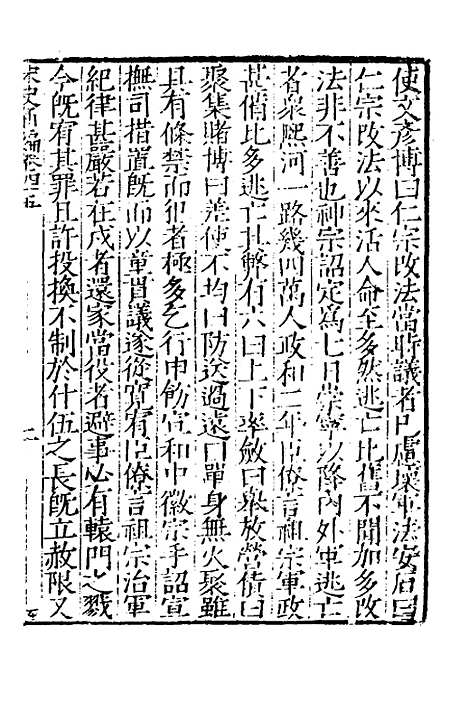 使文彥博曰仁宗改法當時議者已慮壞軍法安石曰
仁宗改法以來活人命至多然逃亡比舊不聞加多改
法非不善也神宗詔定爲七日崇寧以降內外軍逃亡
者衆熈河一路幾四萬人政和二年臣僚言祖宗軍政
甚備比多逃亡其弊有六曰上下率斂曰舉放營債曰
聚集賭博曰差使不均曰防送過遠曰單身無火聚雖
具有條禁而犯者極多乞行申飭宣和中徽宗手詔宣
撫司措置旣而以童貫議遂從寬宥臣僚言祖宗治軍
紀律甚嚴若在戍者還家當役者避事必有轅門之戮
今旣宥其罪且許投換不制於什伍之長旣立赦限又
宋史新編卷四十五
二